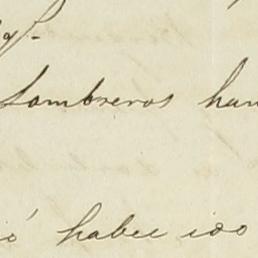 Sombreros han
ió haber ido